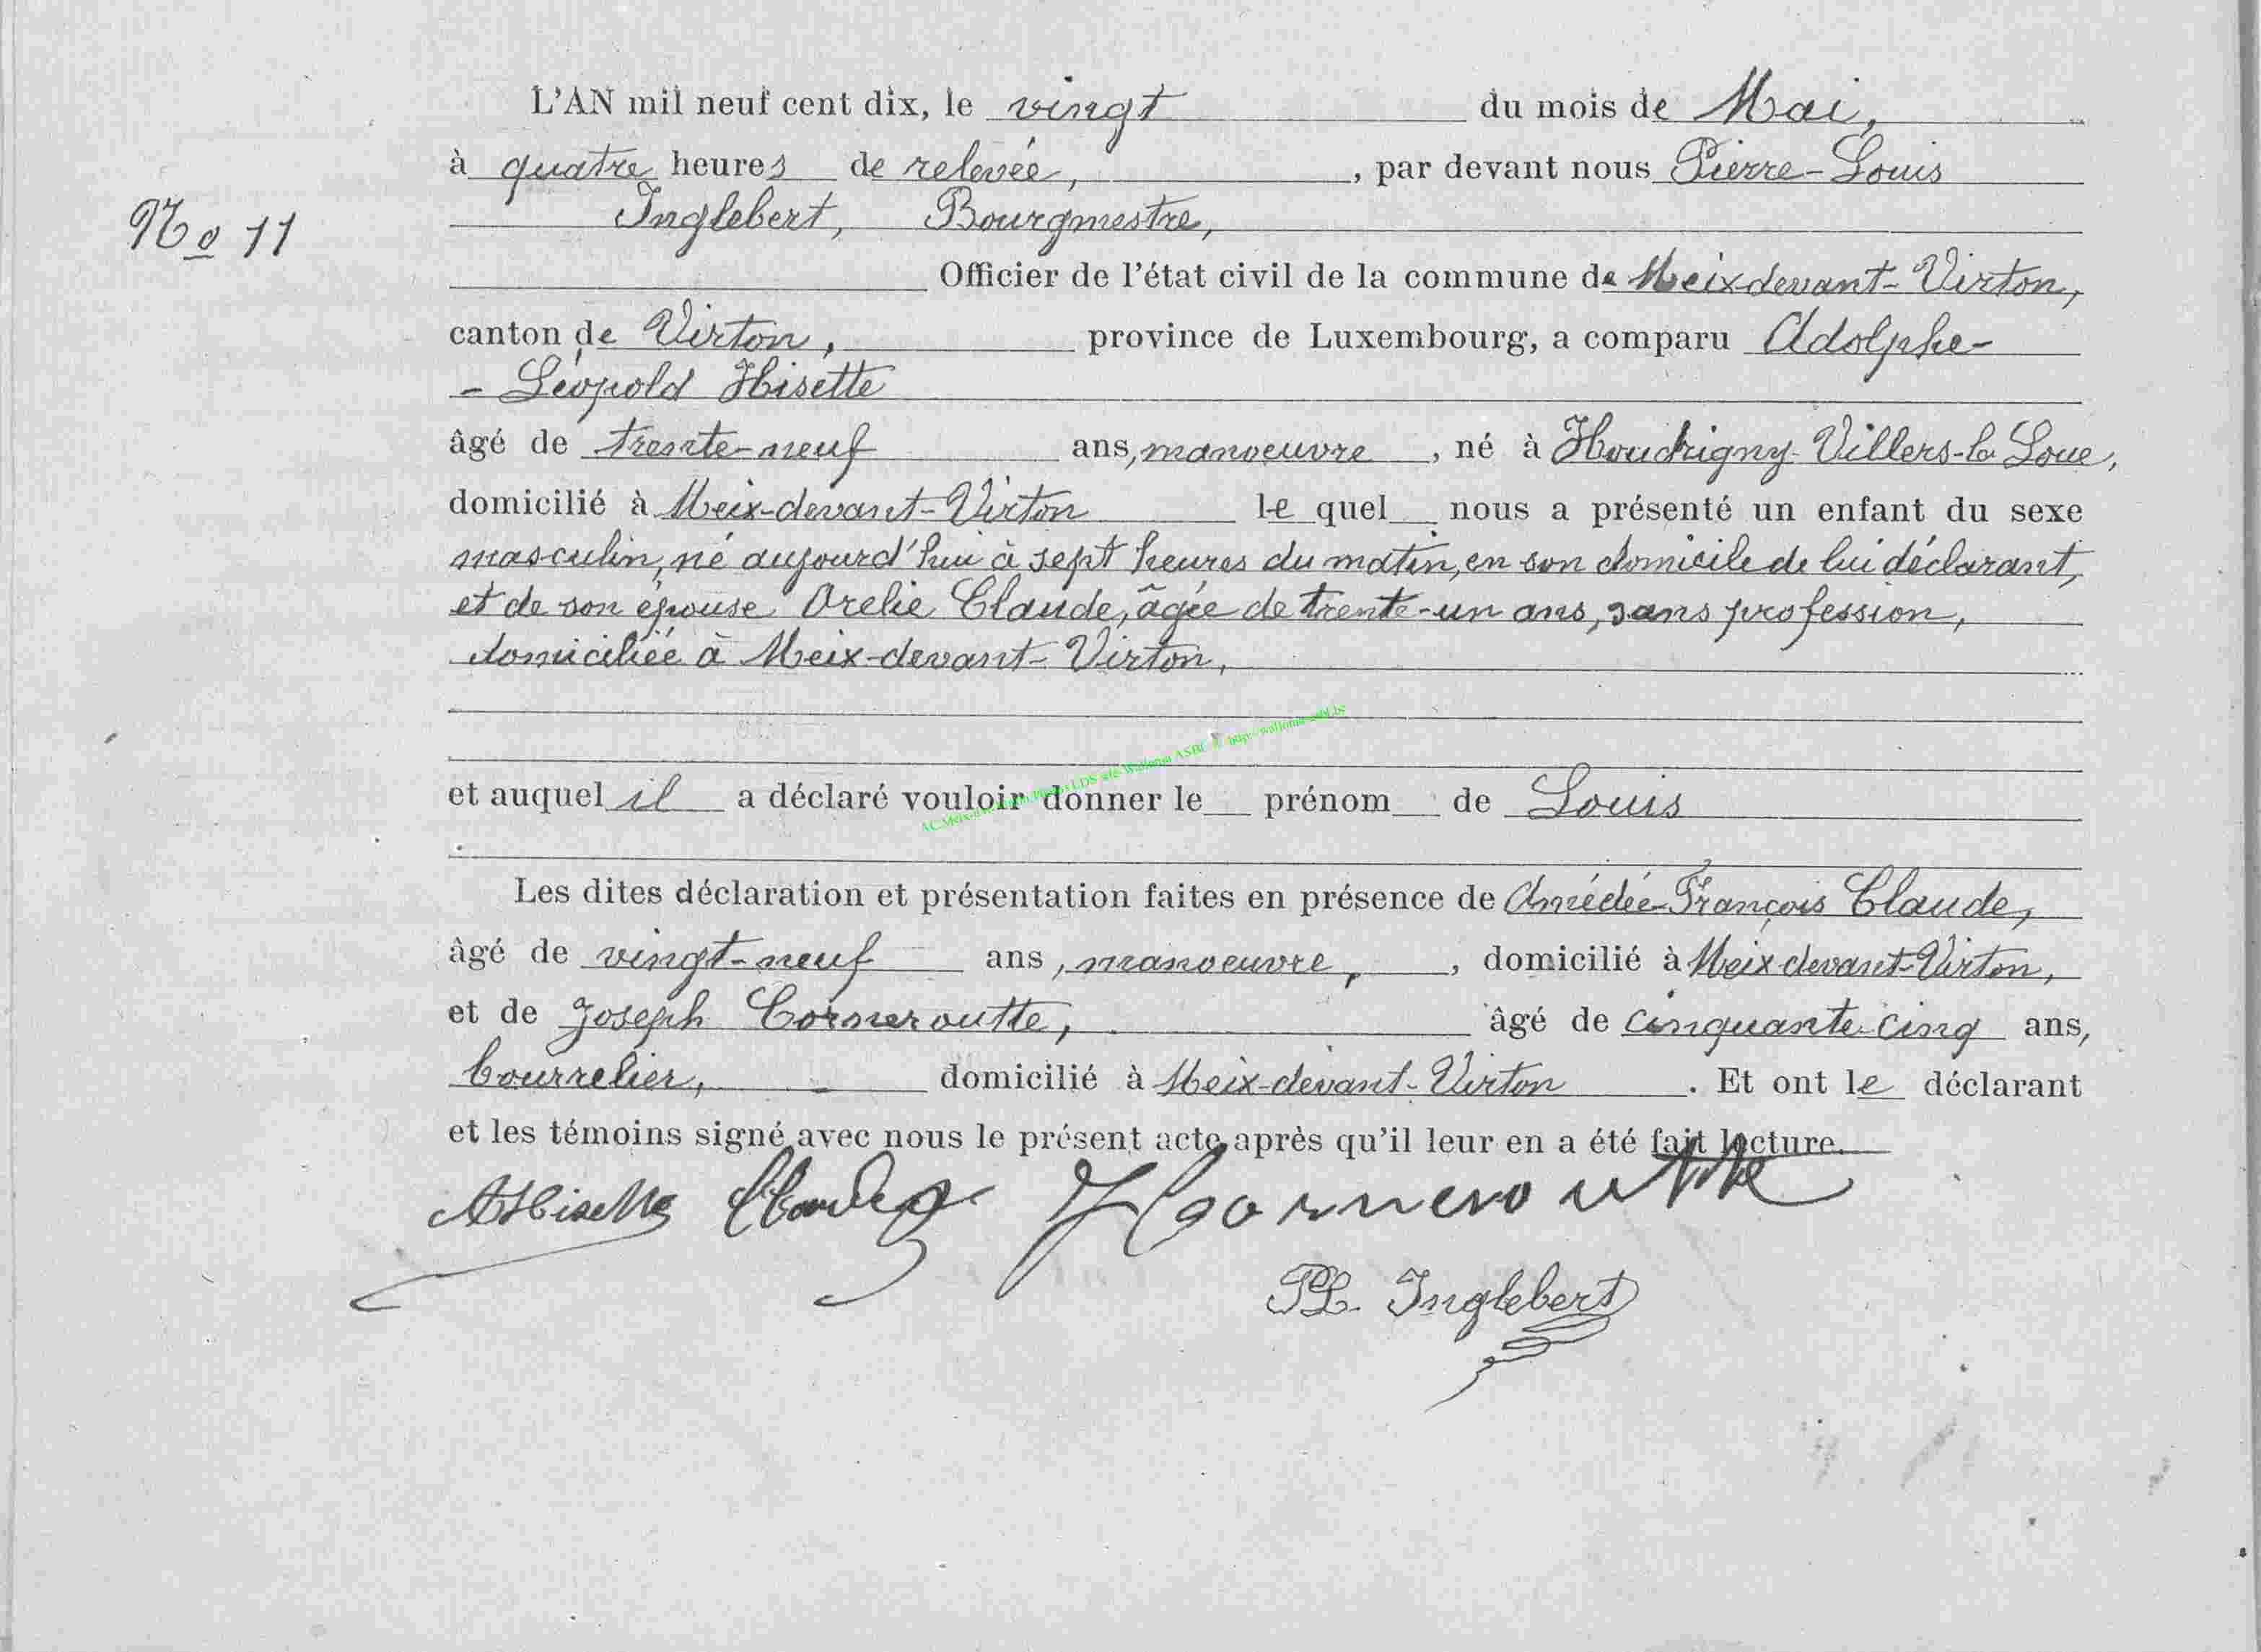 L'AN mil neuf cent dix, le vingt du mois de Mai,
à quatre heures de relevée, , par devant nous Pierre-Louis
No 11
Inglebert, Bourgmestre,
Officier de l'état civil de la commune de Meix-devant-Virton,
canton de Virton, province de Luxembourg, a comparu Adolphe-
- Léopold Hisette
âgé de trente-neuf ans, manoeuvre , né à Houdrigny-Villers-la Loue,
domicilié à Meix-devant-Virton le quel nous a présenté un enfant du sexe
masculin, né aujourd'hui à sept heures du matin, en son domicile de lui déclarant,
et de son épouse Orelie Claude, âgée de trente-un ans, sans profession,
domiciliée à Meix-devant-Virton,
et auquel il a déclaré vouloir donner le prénom de Louis
Les dites déclaration et présentation faites en présence de Amédée-François Claude,
âgé de vingt-neuf ans, manoeuvre, , domicilié à Meix-devant-Virton,
et de Joseph Corneroutte, âgé de cinquante-cinq ans,
bourrelier, domicilié à Meix-devant-Virton . Et ont le déclarant
et les témoins signé avec nous le présent acte, après qu'il leur en a été fait lecture.
AHisette Claude J Corneroutte
PL. Inglebert